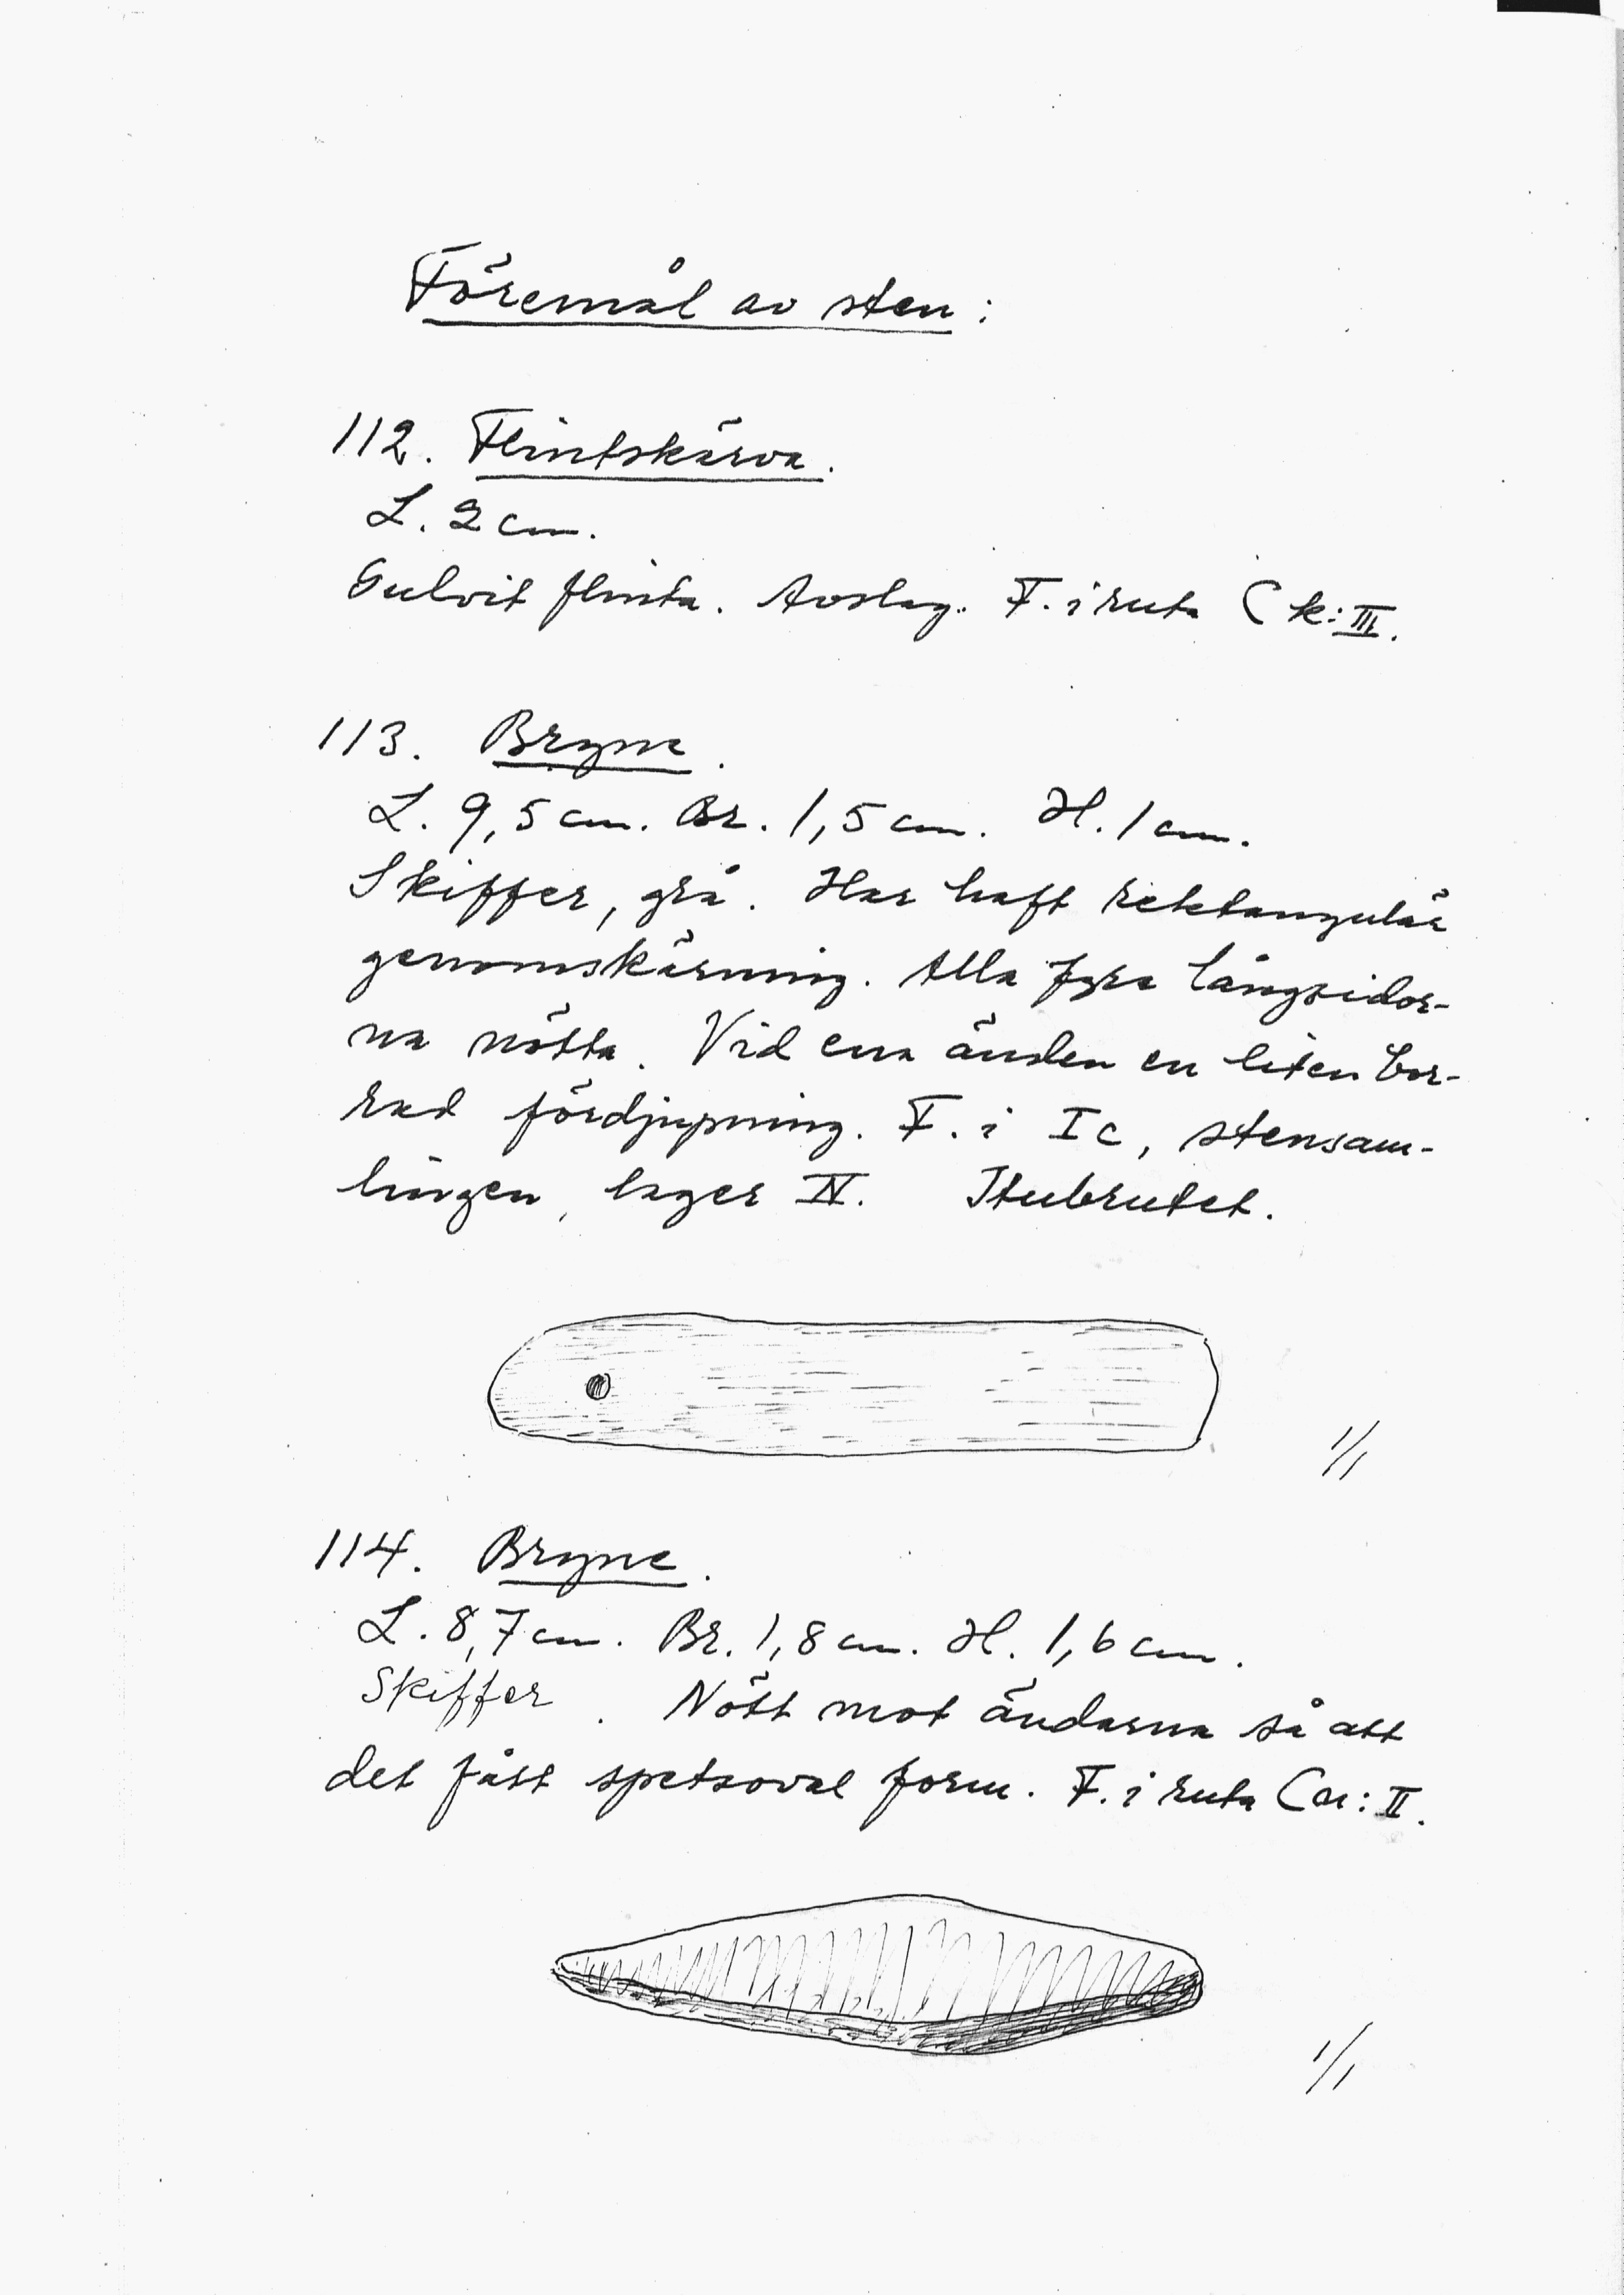 Föremål av sten:
112. Flintskärva.
L. 2 cm.
Gulvit flinta. Avslag. F. i ruta C k: III.
113. Bryne.
L. 9,5 cm. Br. 1,5 cm. H. 1 cm.
Skiffer, grå. Har haft rektangulär
genomskärning. Alla fyra långsidor-
na nötta. Vid ena änden en liten bor-
rad fördjupning. F. i I c, stensam-
lingen, lager IV. Itubrutet.
1/1
114. Bryne.
L. 8,7 cm. Br. 1,8 cm. H. 1,6 cm.
Skiffer. Nött mot ändarna så att
det fått spetsoval form. F. i ruta : II.
1/1